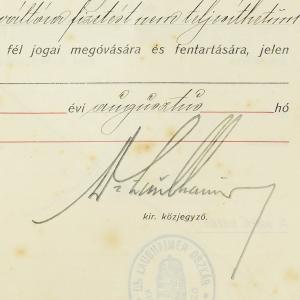 váltóra fizetést nem teljesíthetünk
fél jogai megóvására és fentartására, jelen
évi augusztus hó
Dr
kir. közjegyző.
DR LAUBHEIMER OSZKÁR